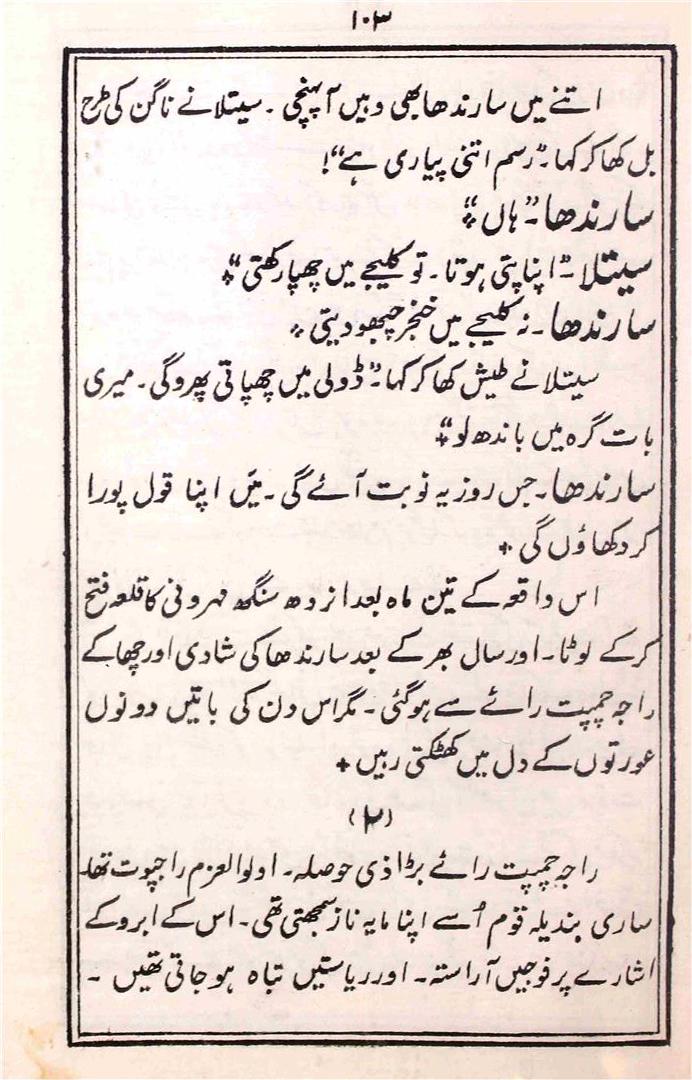 ۱۰۳
اتنے میں سارندھا بھی وہیں آ پہنچی ۔ سیتلا نے ناگن کی طرح
بل کھا کر کہا۔ "رسم اتنی پیاری ہے"!
سارندھا۔ "ہاں"+
سیتلا۔ "اپنا پتی ہوتا۔ تو کلیجے میں چھپا رکھتی"+
سارندھا۔ نہ کلیجے میں خنجر چبھو دیتی +
سیتلا نے طیش کھا کر کہا۔ "ڈولی میں چھپاتی پھروگی۔ میری
بات گرہ میں باندھ لو"+
سارندھا۔ جس روز یہ نوبت آئے گی۔ میں اپنا قول پورا
کر دکھاؤں گی +
اس واقعہ کے تین ماہ بعد انرودھ سنگھ مہرونی کا قلعہ فتح
کرکے لوٹا۔ اور سال بھر کے بعد سارندھا کی شادی اورچھا کے
راجہ چمپت رائے سے ہوگئی۔ مگر اس دن کی باتیں دونوں
عورتوں کے دل میں کھٹکتی رہیں +
(۲)
راجہ چمپت رائے بڑا ذی حوصلہ۔ اولوالعزم راجپوت تھا۔
ساری بندیلہ قوم اُسے اپنا مایہ ناز سمجھتی تھی۔ اس کے ابرو کے
اشارے پر فوجیں آراستہ۔ اور ریاستیں تباہ ہو جاتی تھیں ۔